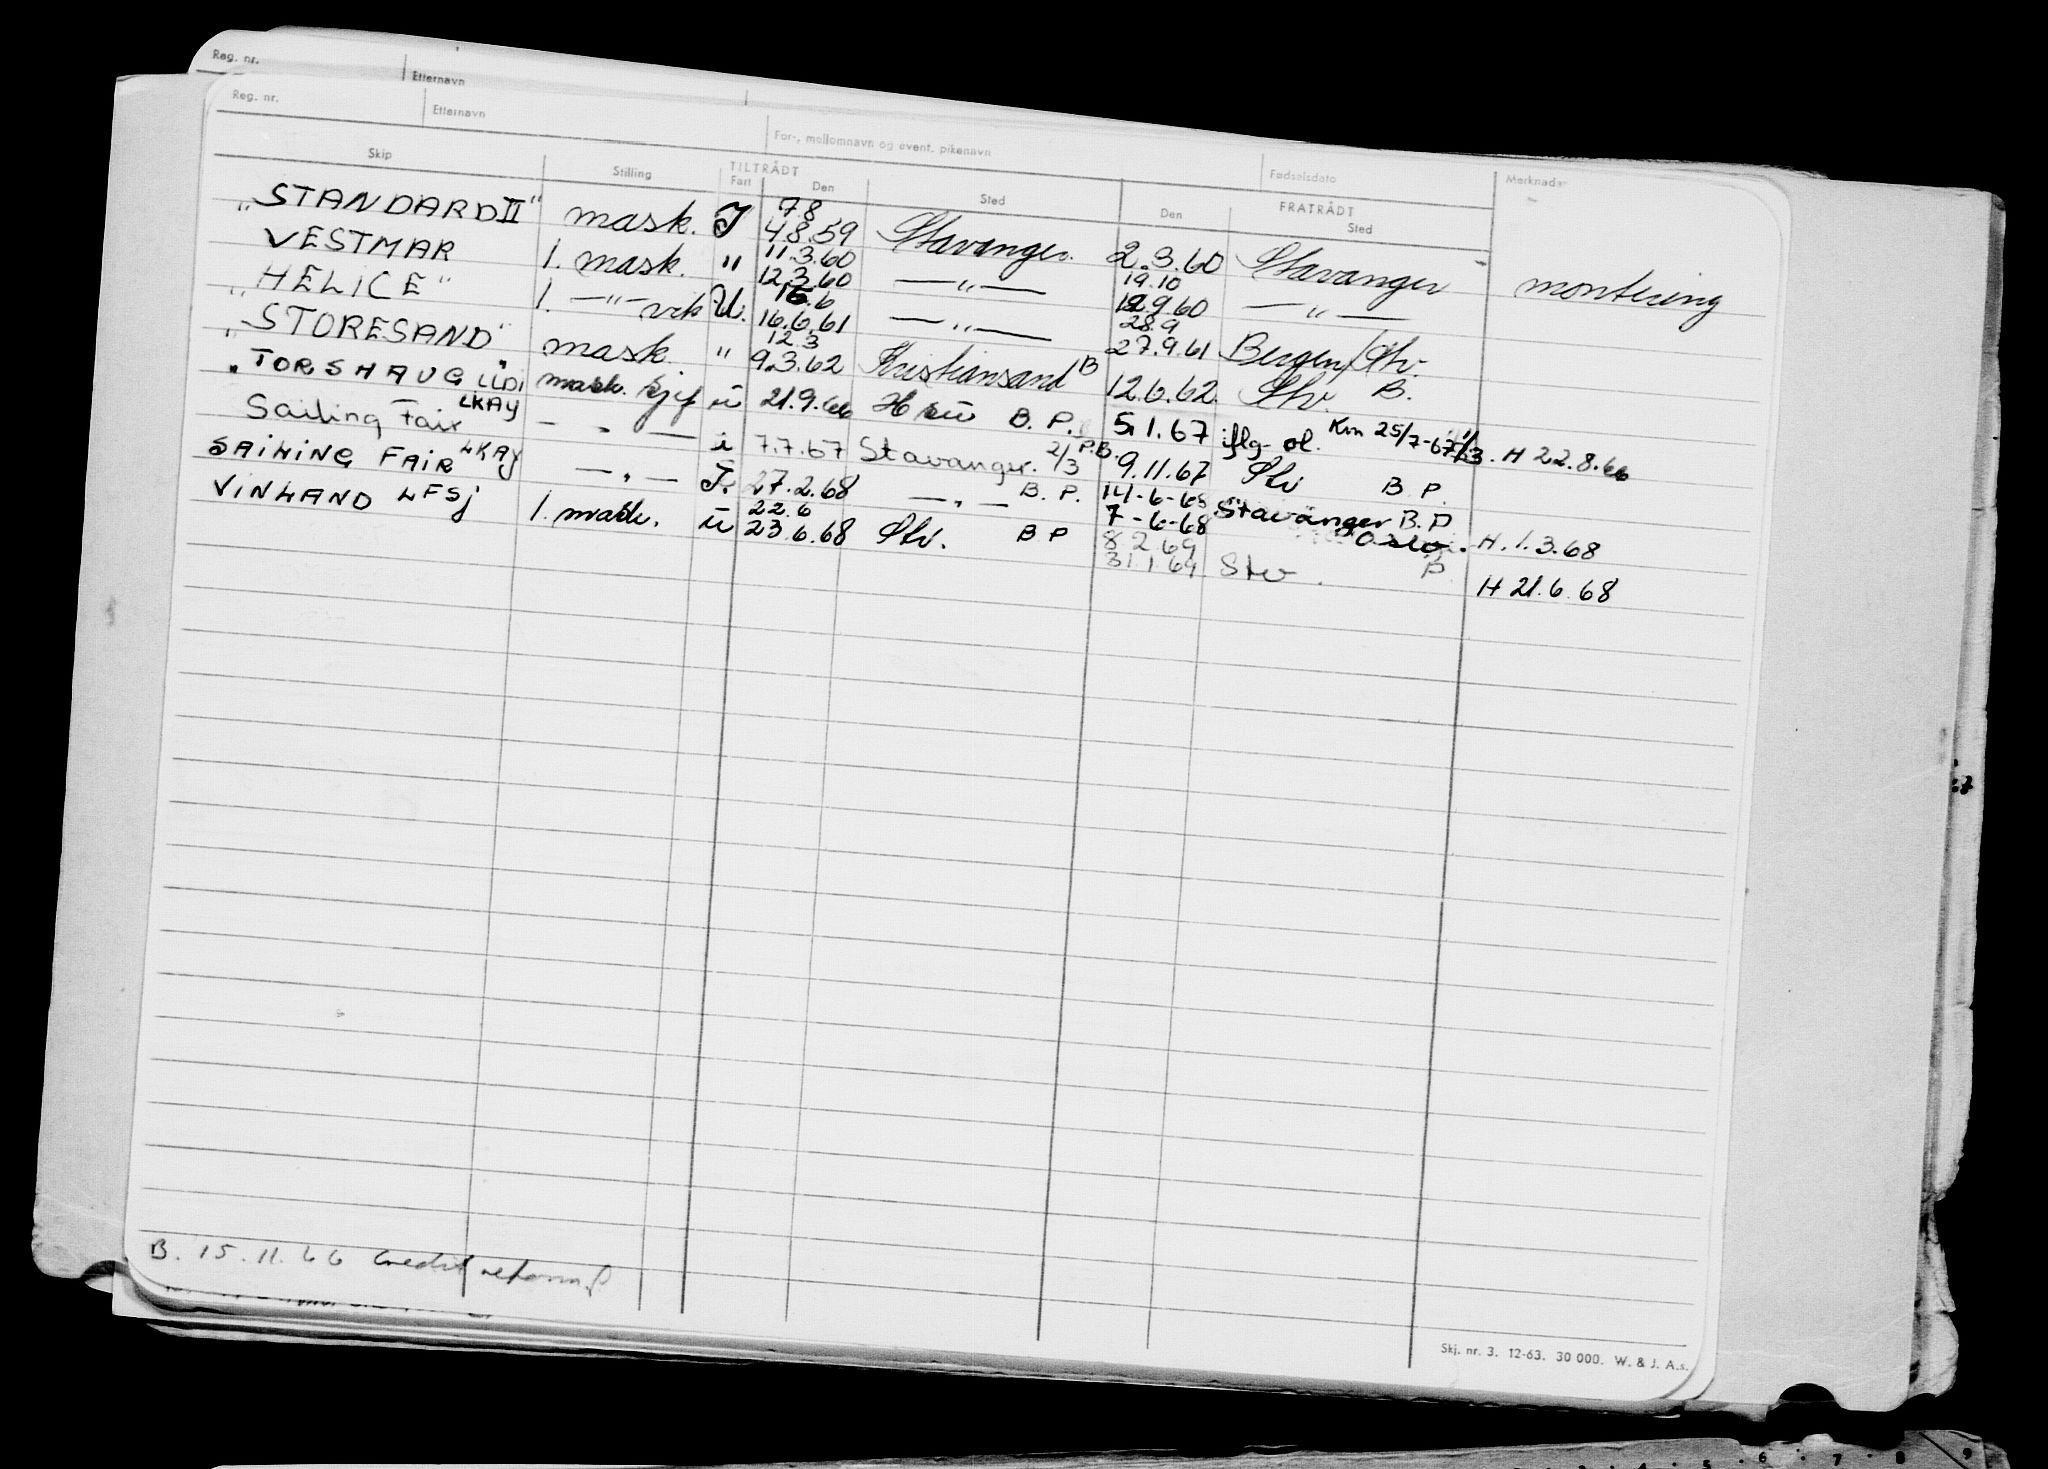 Reg. nr. Etternavn
Reg. nr. Etternavn For-, mellomnavn og event. pikenavn Fødselsdato Merknader
Skip Stilling TILTRÅDT Fart Den Sted FRATRÅDT Den Sted
"STANDARD II" mask. I 7.8 4.8.59 Stavanger. 2.3.60 Stavanger montering
VESTMAR 1. mask. " 11.3.60 12.3.60 — " — 19.10 12.9.60 — " —
"HELICE" 1. —"— vik U. 15.6 16.6.61 — " — 28.9 27.9.61 Bergen/Stv.
"STORESAND" mask " 12.3 9.3.62 Kristiansand B 12.6.62. Stv. B.
"TORSHAUG" LLDI mask. kjef u 21.9.66 B. P. 5.1.67 iflg. ol. Km 25/7-67 H 22.8.66
Sailing Fair LKAY — " — i 7.7.67 Stavanger. 2/3 P.B. 9.11.67 Stv B P.
SAILING FAIR LKAY — " — I. 27.2.68 — " — B. P. 14-6-68 Stavanger B.P
7-6-68 Oslo. H. 1.3.68
VINLAND LFSJ 1. mask. u 22.6 23.6.68 Stv. B P 8.2.69 31.1.69 Stv. P. H 21.6.68
B. 15.11.66 Creditreform
Skj. nr. 3. 12-63. 30 000. W. & J. A.s.